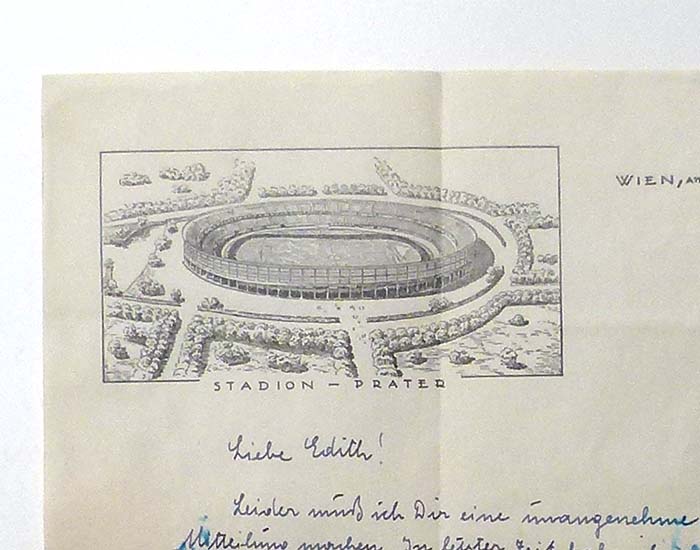 WIEN, AM
STADION – PRATER
Liebe Edith!
Leider muß ich Dir eine unangenehme
Mitteilung machen. In letzter Zeit